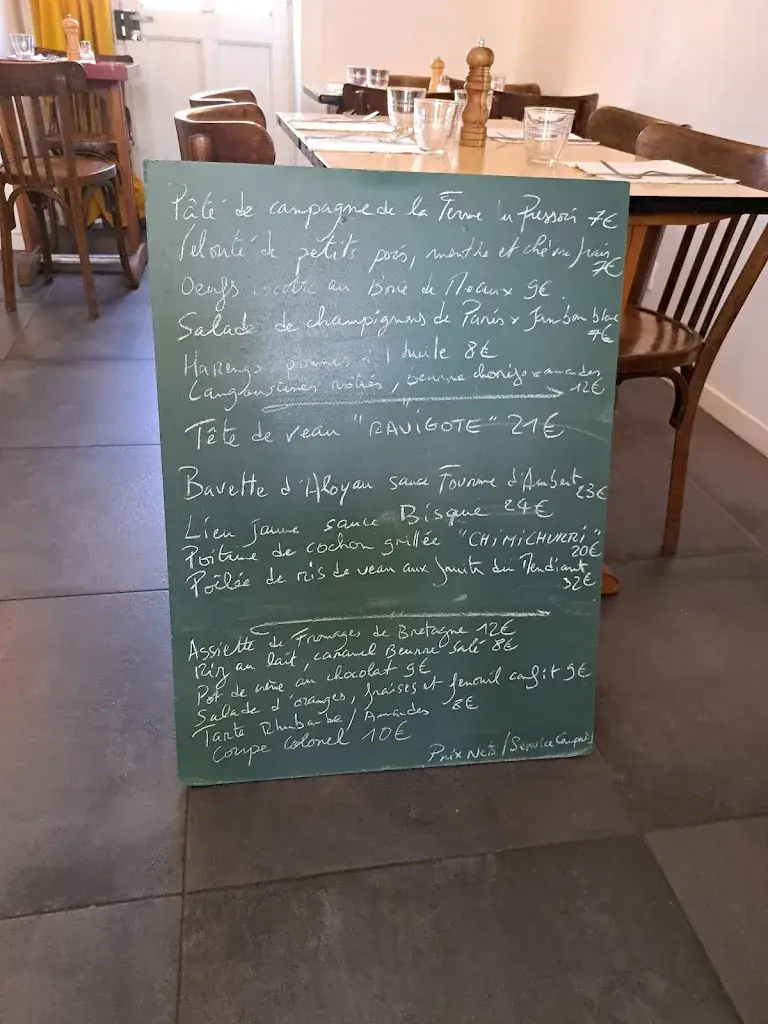 Pâté de campagne de la Ferme du Pressoir 7€
Velouté de petits pois, menthe et chèvre frais 7€
Oeufs cocotte au Brie de Meaux 9€
Salade de champignons de Paris x Jambon blanc 7€
Harengs pommes à l'huile 8€
Langoustines rôties, beurre chorizo x amandes 12€
Tête de veau "RAVIGOTE" 21€
Bavette d'Aloyau sauce Fourme d'Ambert 23€
Lieu jaune sauce Bisque 24€
Poitrine de cochon grillée "CHIMICHURRI" 20€
Poêlée de ris de veau aux fruits du Mendiant 32€
Assiette de Fromages de Bretagne 12€
Riz au lait, caramel Beurre Salé 8€
Pot de crème au chocolat 9€
Salade d'oranges, fraises et fenouil confit 9€
Tarte Rhubarbe / Amandes 8€
Coupe Colonel 10€
Prix Nets / Service Compris